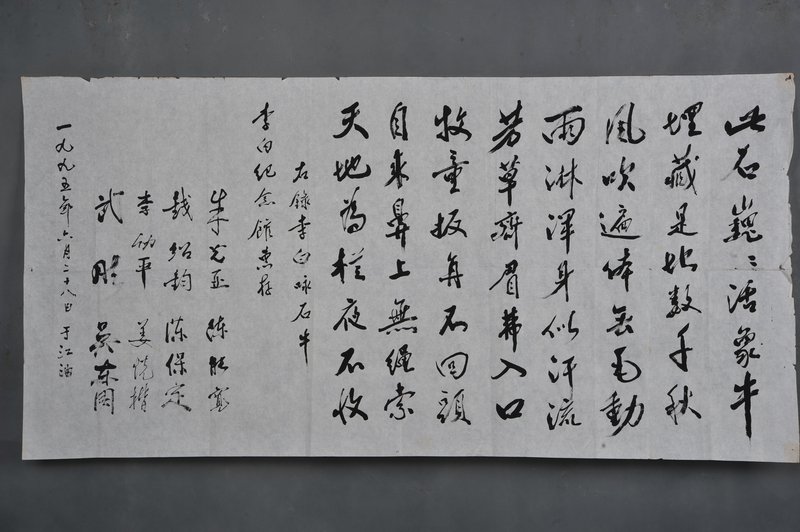 此石巍〻活象牛
埋藏是地数千秋
風吹遍体無毛動
雨淋渾身似汗流
芳草齊眉弗入口
牧童扳角不回頭
自来鼻上無繩索
天地為栏夜不收
右錄李白咏石牛
李白纪念館惠存
朱光亚 陈能宽
钱绍钧 陈保定
李幼平 姜悦楷
武胜 吴东周
一九九五年六月二十八日于江油